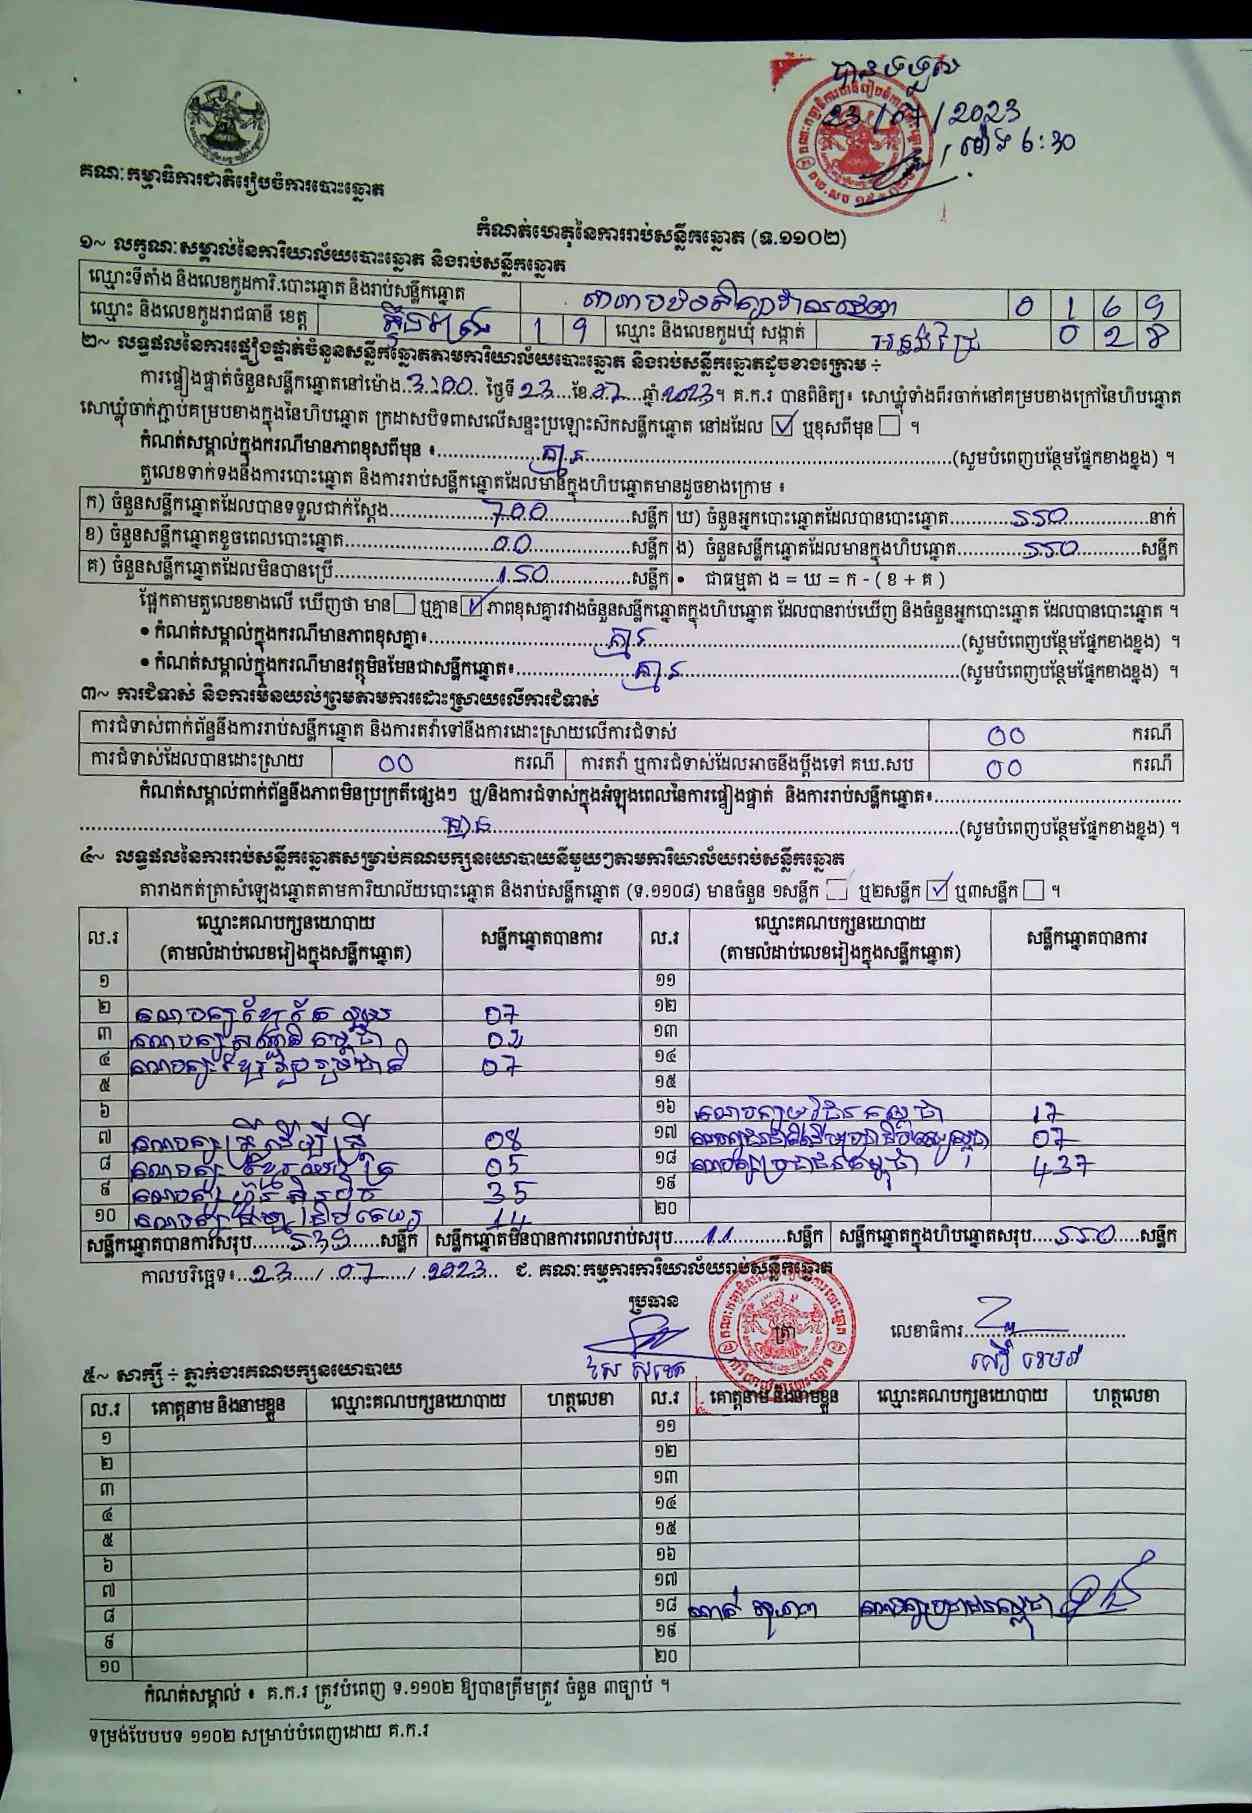 បានទទួល
23/07/2023
ម៉ោង 6:30
គណៈកម្មាធិការជាតិរៀបចំការបោះឆ្នោត
កំណត់ហេតុនៃការរាប់សន្លឹកឆ្នោត (ទ.១១០២)
១~ លក្ខណៈសម្គាល់នៃការិយាល័យបោះឆ្នោត និងរាប់សន្លឹកឆ្នោត
ឈ្មោះទីតាំង និងលេខកូដការិ.បោះឆ្នោត និងរាប់សន្លឹកឆ្នោត 0 1 6 9
ឈ្មោះ និងលេខកូដរាជធានី ខេត្ត ស្ទឹងត្រែង 1 9 ឈ្មោះ និងលេខកូដឃុំ សង្កាត់ 0 2 8
២~ លទ្ធផលនៃការផ្ទៀងផ្ទាត់ចំនួនសន្លឹកឆ្នោតតាមការិយាល័យបោះឆ្នោត និងរាប់សន្លឹកឆ្នោតដូចខាងក្រោម ÷
ការផ្ទៀងផ្ទាត់ចំនួនសន្លឹកឆ្នោតនៅម៉ោង 3:00 ថ្ងៃទី 23 ខែ 07 ឆ្នាំ 2023 ។ គ.ក.រ បានពិនិត្យ៖ សោឃ្លុំទាំងពីរចាក់នៅគម្របខាងក្រៅនៃហិបឆ្នោត
សោឃ្លុំចាក់ភ្ជាប់គម្របខាងក្នុងនៃហិបឆ្នោត ក្រដាសបិទពាសលើសន្ទះប្រឡោះស៊កសន្លឹកឆ្នោត នៅដដែល ☑ ឬខុសពីមុន ☐ ។
កំណត់សម្គាល់ក្នុងករណីមានភាពខុសពីមុន ៖ គ្មាន (សូមបំពេញបន្ថែមផ្នែកខាងខ្នង) ។
តួលេខទាក់ទងនឹងការបោះឆ្នោត និងការរាប់សន្លឹកឆ្នោតដែលមានក្នុងហិបឆ្នោតមានដូចខាងក្រោម ៖
ក) ចំនួនសន្លឹកឆ្នោតដែលបានទទួលជាក់ស្តែង 700 សន្លឹក ឃ) ចំនួនអ្នកបោះឆ្នោតដែលបានបោះឆ្នោត 550 នាក់
ខ) ចំនួនសន្លឹកឆ្នោតខូចពេលបោះឆ្នោត 00 សន្លឹក ង) ចំនួនសន្លឹកឆ្នោតដែលមានក្នុងហិបឆ្នោត 550 សន្លឹក
គ) ចំនួនសន្លឹកឆ្នោតដែលមិនបានប្រើ 150 សន្លឹក • ជាធម្មតា ង = ឃ = ក - ( ខ + គ )
ផ្អែកតាមតួលេខខាងលើ ឃើញថា មាន ☐ ឬគ្មាន ☑ ភាពខុសគ្នារវាងចំនួនសន្លឹកឆ្នោតក្នុងហិបឆ្នោត ដែលបានរាប់ឃើញ និងចំនួនអ្នកបោះឆ្នោត ដែលបានបោះឆ្នោត ។
• កំណត់សម្គាល់ក្នុងករណីមានភាពខុសគ្នា៖ គ្មាន (សូមបំពេញបន្ថែមផ្នែកខាងខ្នង) ។
• កំណត់សម្គាល់ក្នុងករណីមានវត្ថុមិនមែនជាសន្លឹកឆ្នោត៖ គ្មាន (សូមបំពេញបន្ថែមផ្នែកខាងខ្នង) ។
៣~ ការជំទាស់ និងការមិនយល់ព្រមតាមការដោះស្រាយលើការជំទាស់
ការជំទាស់ពាក់ព័ន្ធនឹងការរាប់សន្លឹកឆ្នោត និងការតវ៉ាទៅនឹងការដោះស្រាយលើការជំទាស់ 00 ករណី
ការជំទាស់ដែលបានដោះស្រាយ 00 ករណី ការតវ៉ា ឬការជំទាស់ដែលអាចនឹងប្តឹងទៅ គឃ.សប 00 ករណី
កំណត់សម្គាល់ពាក់ព័ន្ធនឹងភាពមិនប្រក្រតីផ្សេងៗ ឬ/និងការជំទាស់ក្នុងអំឡុងពេលនៃការផ្ទៀងផ្ទាត់ និងការរាប់សន្លឹកឆ្នោត៖
គ្មាន (សូមបំពេញបន្ថែមផ្នែកខាងខ្នង) ។
៤~ លទ្ធផលនៃការរាប់សន្លឹកឆ្នោតសម្រាប់គណបក្សនយោបាយនីមួយៗតាមការិយាល័យរាប់សន្លឹកឆ្នោត
តារាងកត់ត្រាសំឡេងឆ្នោតតាមការិយាល័យបោះឆ្នោត និងរាប់សន្លឹកឆ្នោត (ទ.១១០៨) មានចំនួន ១សន្លឹក ☐ ឬ២សន្លឹក ☑ ឬ៣សន្លឹក ☐ ។
ល.រ ឈ្មោះគណបក្សនយោបាយ (តាមលំដាប់លេខរៀងក្នុងសន្លឹកឆ្នោត) សន្លឹកឆ្នោតបានការ ល.រ ឈ្មោះគណបក្សនយោបាយ (តាមលំដាប់លេខរៀងក្នុងសន្លឹកឆ្នោត) សន្លឹកឆ្នោតបានការ
១ ១១
២ គណបក្សខ្មែរតែមួយ 07 ១២
៣ 02 ១៣
៤ គណបក្ស 07 ១៤
៥ ១៥
៦ ១៦ គណបក្ស 17
៧ គណបក្ស 08 ១៧ 07
៨ គណបក្ស 05 ១៨ គណបក្សប្រជាជនកម្ពុជា 437
៩ គណបក្សហ៊្វុនស៊ិនប៉ិច 35 ១៩
១០ គណបក្ស 14 ២០
សន្លឹកឆ្នោតបានការសរុប 539 សន្លឹក សន្លឹកឆ្នោតមិនបានការពេលរាប់សរុប 11 សន្លឹក សន្លឹកឆ្នោតក្នុងហិបឆ្នោតសរុប 550 សន្លឹក
កាលបរិច្ឆេទ៖ 23 / 07 / 2023 ជ. គណៈកម្មការការិយាល័យរាប់សន្លឹកឆ្នោត
ប្រធាន
ត្រា
លេខាធិការ
៥~ សាក្សី ÷ ភ្នាក់ងារគណបក្សនយោបាយ
ល.រ គោត្តនាម និងនាមខ្លួន ឈ្មោះគណបក្សនយោបាយ ហត្ថលេខា ល.រ គោត្តនាម និងនាមខ្លួន ឈ្មោះគណបក្សនយោបាយ ហត្ថលេខា
១ ១១
២ ១២
៣ ១៣
៤ ១៤
៥ ១៥
៦ ១៦
៧ ១៧
៨ ១៨ គណបក្សប្រជាជនកម្ពុជា
៩ ១៩
១០ ២០
កំណត់សម្គាល់ ៖ គ.ក.រ ត្រូវបំពេញ ទ.១១០២ ឱ្យបានត្រឹមត្រូវ ចំនួន ៣ច្បាប់ ។
ទម្រង់បែបបទ ១១០២ សម្រាប់បំពេញដោយ គ.ក.រ